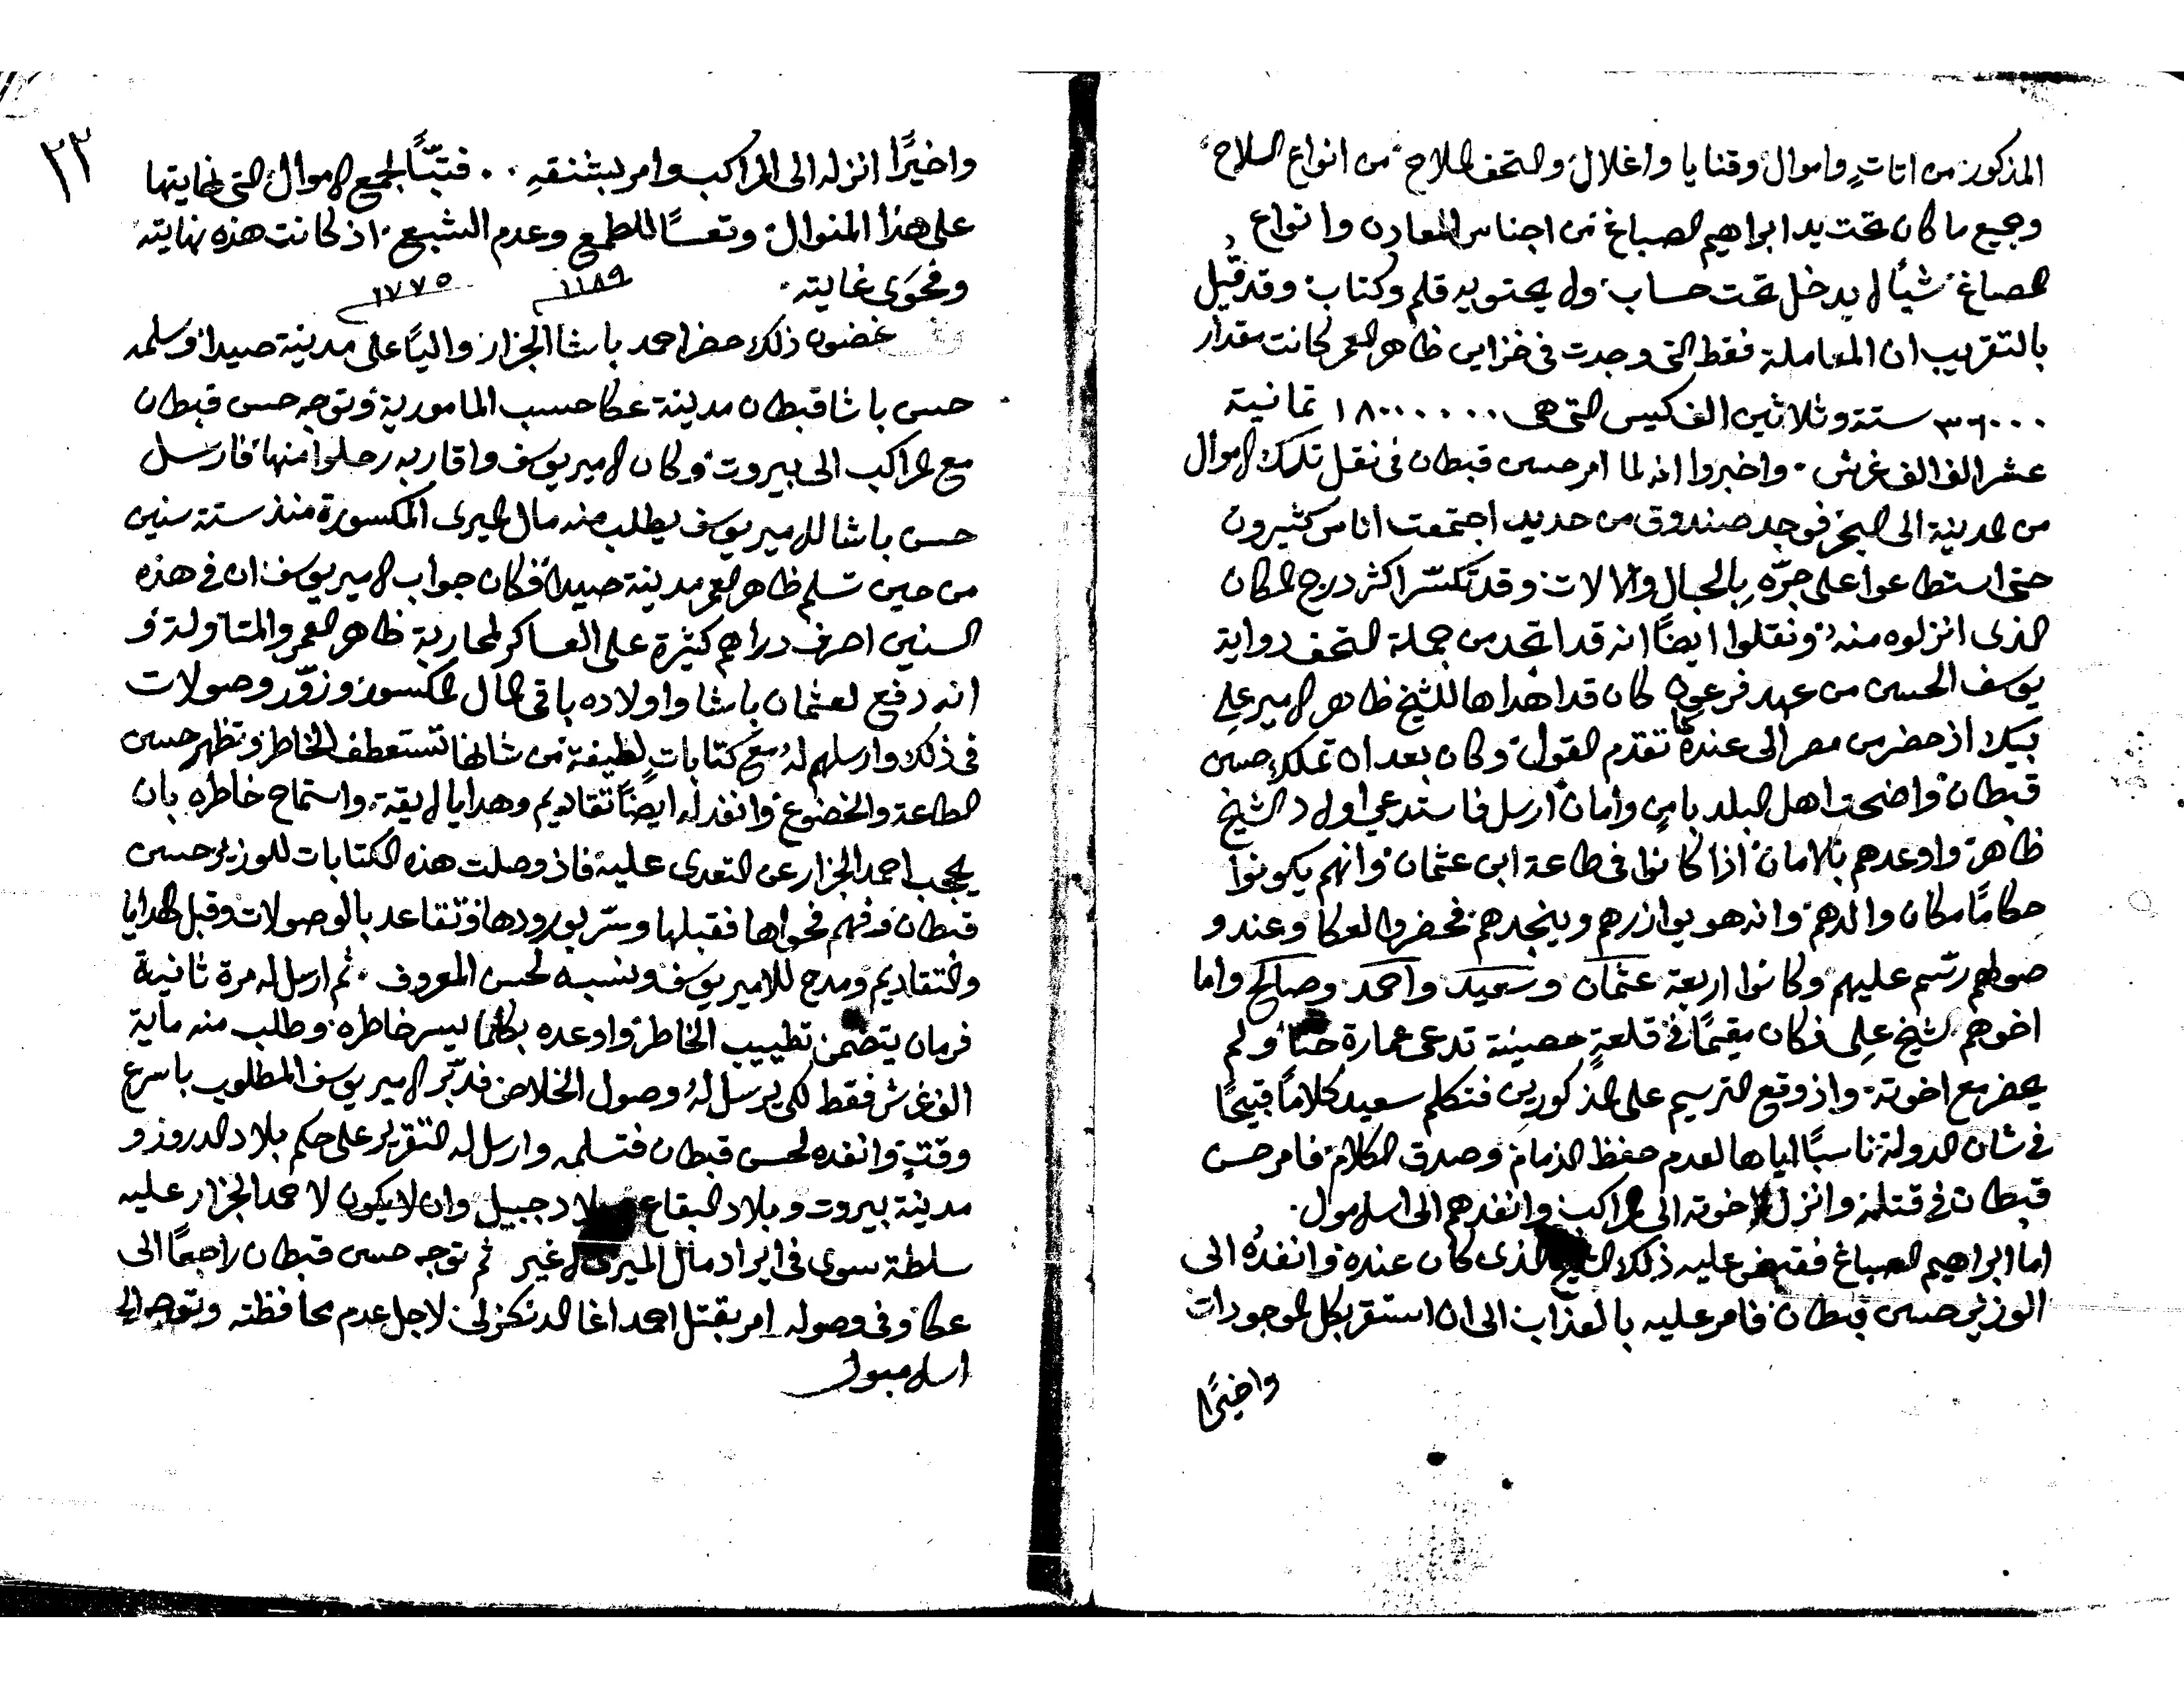 المذكور من اتاتٍ واموال وقنايا واغلال والتحف الملاح من انواع السلاح
وجميع ما كان تحت يد ابراهيم الصباغ من اجناس المعادن وانواع
المصاغ شياً لا يدخل تحت حساب ولا يحتويه قلم وكتاب وقد قيل
بالتقريب ان المعاملة فقط التي وجدت في خزاين ظاهر العمر كانت مقدار
٣٦٠٠٠ ستة وثلاثين الف كيس التي هي ١٨٠٠٠٠٠٠ ثمانية
عشر الف الف غرش. واخبروا انه لما امر حسن قبطان في نقل تلك الاموال
من المدينة الى البحر فوجد صندوق من حديد اجتمعت اناس كثيرون
حتى استطاعوا على جرّه بالحبال والالات وقد تكسّر اكثر درج المكان
الذى انزلوه منه ونقلوا ايضاً انه قد اتجد من جملة التحف دواية
يوسف الحسن من عهد فرعون كان قد اهداها للشيخ ظاهر الامير علي
بيك اذ حضر من مصر الى عنده كما تقدم القول وكان بعد ان تملك حسن
قبطان واضحت اهل البلد بامنٍ وامان ارسل فاستدعي اولاد الشيخ
ظاهر واوعدهم بالامان اذا كانوا في طاعة ابن عثمان وانهم يكونوا
حكامًا مكان والدهم وانه هو يوازرهم وينجدهم فحضروا لعكا وعند و
صولهم رسّم عليهم وكانوا اربعة عثمان وسعيد واحمد وصالح واما
اخوهم الشيخ علي فكان مقيمًا في قلعةٍ حصينة تدعى عمارة حنّا ولم
يحضر مع اخوته واذ وقع الترسيم على المذكورين فتكلم سعيد كلامًا قبيحًا
في شان الدولة ناسبًا اياها لعدم حفظ الزمام وصدق الكلام فامر حسن
قبطان في قتله وانزل اخوته الى المراكب وانفدهم الى اسلامبول.
اما ابراهيم الصباغ فقبض عليه ذلك الشيخ الذى كان عنده وانفده الى
الوزير حسن قبطان فامر عليه بالعذاب الى ان استقر بكل الموجودات
واخيرًا
٢٢
واخيرًا انزله الى المراكب وامر بشنقهِ .. فتبّاً لجمع الاموال التي نهايتها
على هذا المنوال وتعسًا للطمع وعدم الشبع اذ كانت هذه نهايته
وفحوى غايته. ١١٨٩ ١٧٧٥
غضون ذلك حضر احمد باشا الجزار والياً على مدينة صيدا وسلمه
حسن باشا قبطان مدينة عكا حسب المامورية وتوجه حسن قبطان
مع المراكب الى بيروت وكان الامير يوسف واقاربه رحلوا منها فارسل
حسن باشا للامير يوسف يطلب منه مال الميرى المكسورة منذ ستة سنين
من حين تسلم ظاهر العمر مدينة صيدا فكان جواب الامير يوسف ان في هذه
السنين اصرف دراهم كثيرة على العساكر لمحاربة ظاهر العمر والمتاولة و
انه دفع لعثمان باشا واولاده باقي المال المكسور وزوّر وصولات
في ذلك وارسلهم لهُ مع كتابات لطيفة من شانها تستعطف الخاطر وتظهر حسن
الطاعة والخضوع وانفد له ايضًا تقاديم وهدايا لايقة واستماح خاطره بان
يحجب احمد الجزار عن التعدى عليه فاذ وصلت هذه الكتابات للوزير حسن
قبطان وفهم فحواها فقبلها وسرّ بورودها وتقاعد بالوصولات وقبل الهدايا
والتقاديم ومدح للامير يوسف ونسبه لحسن المعروف. ثم ارسل له مرة ثانية
فرمان يتضمن تطييب الخاطر واوعده بكلما يسر خاطره وطلب منه ماية
الف غرش فقط لكي يرسل لهُ وصول الخلاص فدبّر الامير يوسف المطلوب باسرع
وقتٍ وانفده لحسن قبطان فتسلمه وارسل له التقرير على حكم بلاد الدروز و
مدينة بيروت وبلاد البقاع وبلاد جبيل وان لا يكون لاحمد الجزار عليه
سلطة سوى في ايراد مال الميرى لا غير ثم توجه حسن قبطان راجعًا الى
عكا وفي وصوله امر بقتل احمد اغا الدنكزلى لاجل عدم محافظته وتوجه الى
اسلامبول